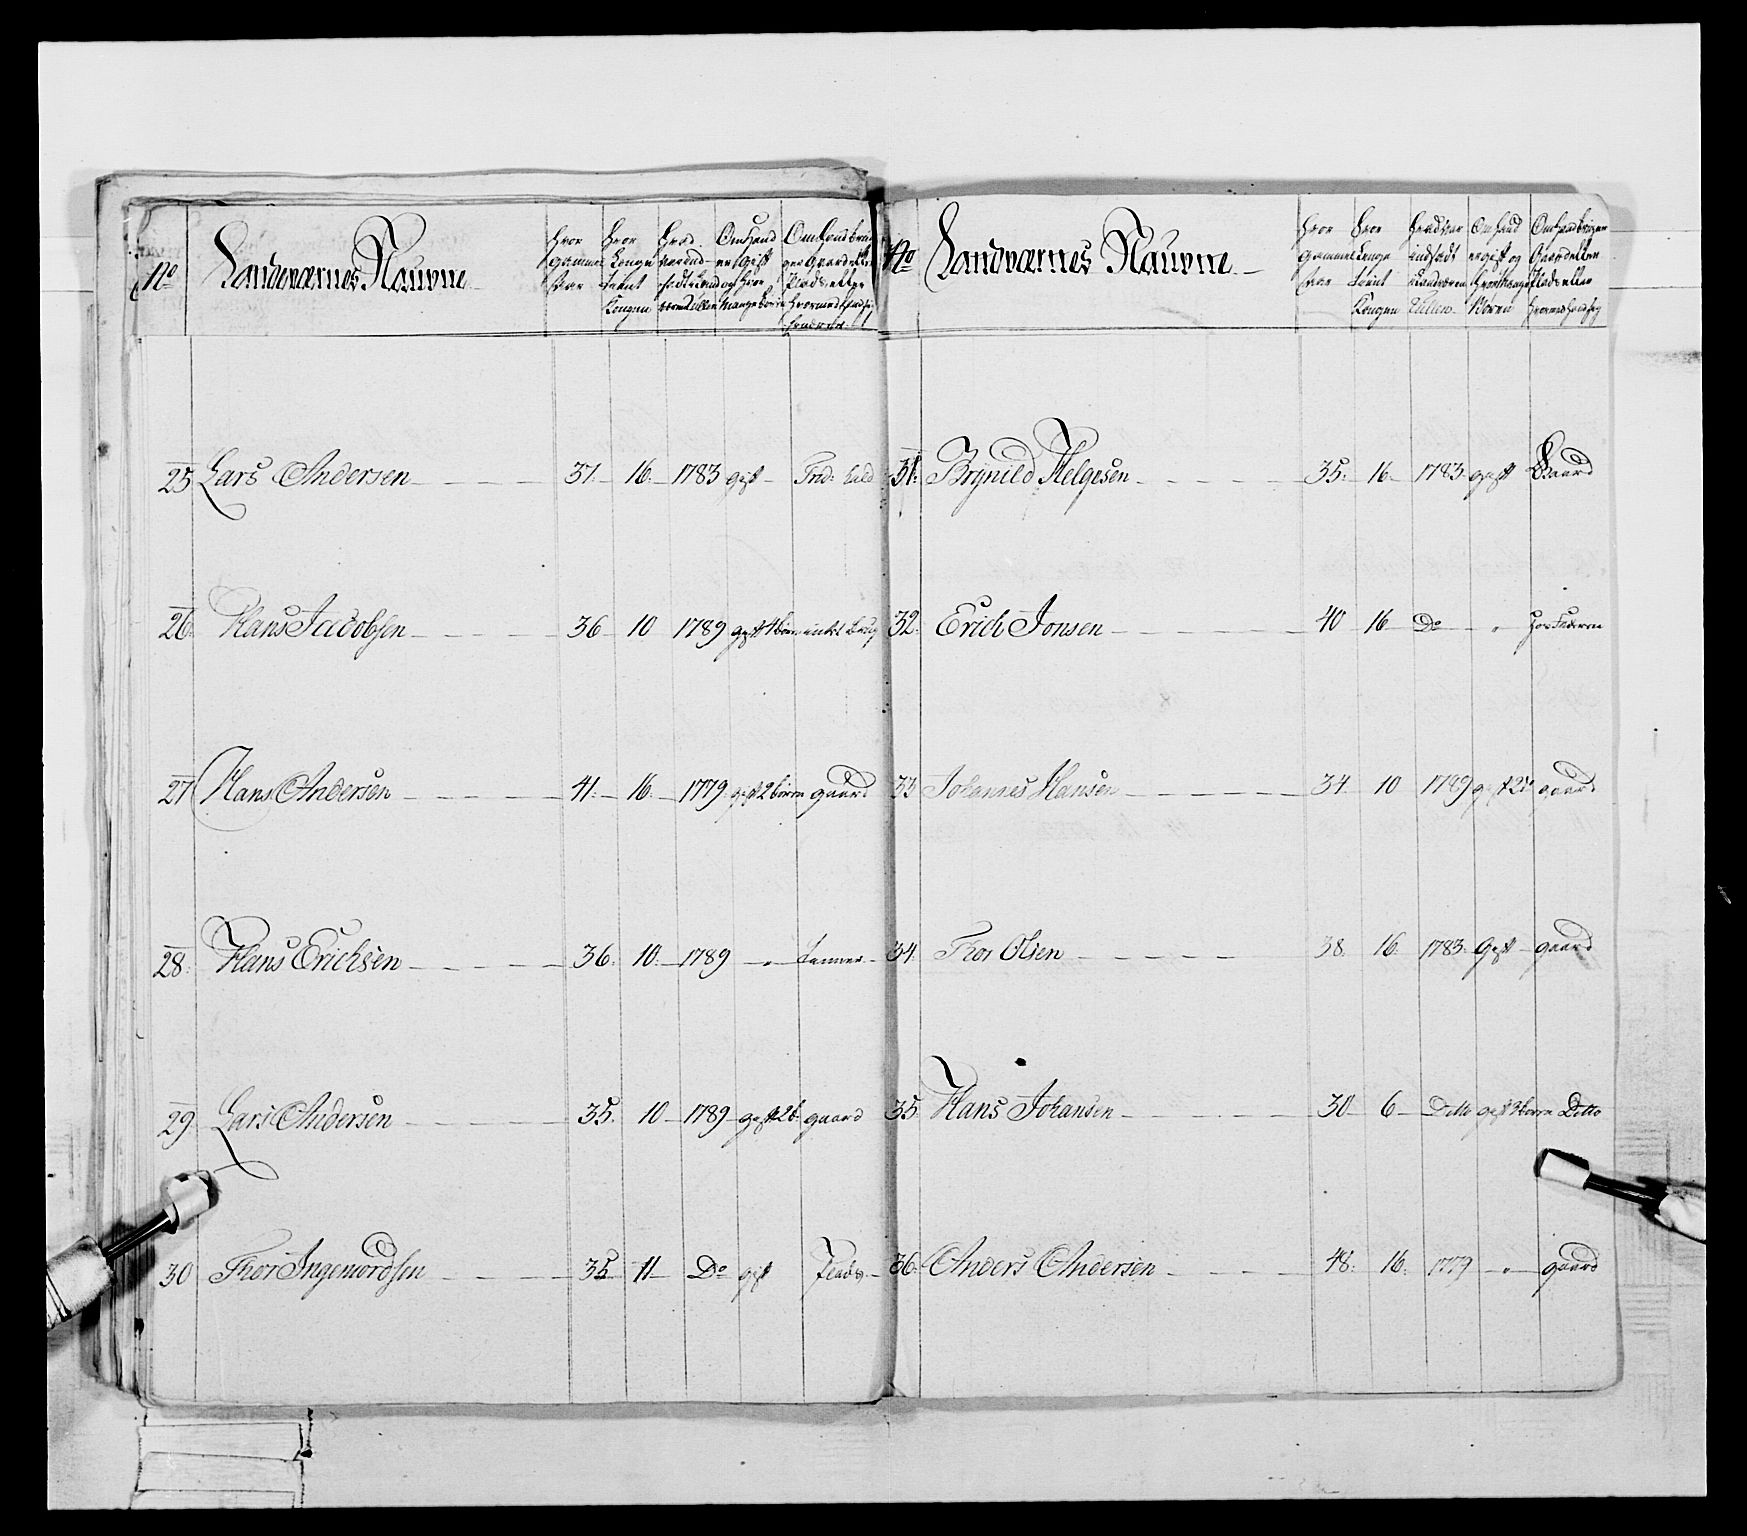 No Landværnes Nauvne
Hvor gammel
Hvor Længe tient Kongen
Hvad
Om Hand er gift og Hvor Mange Børn
Om Hand bruger Gaard eller Plads eller
25 Lars Andersen 37. 16. 1783 gift
26. Hans Jacobsen 36 10 1789 gift 1 børn
27 Hans Andersen 41. 16. 1779 gift 2 børn gaard
28. Hans Erichsen 36. 10. 1789 „
29. Lars Andersen 35. 10 1789 gift 2 b. gaard
30 Thor Ingemordsen 35 11 Do gift Plads
No Landværnes Nauvne
Hvor gammel
Hvor Længe tient Kongen
Hvad Aar indsadt
Om Hand er gift og Hvor Mange Børn
Om Hand bruger Gaard eller Plads eller
31. Brynild Helgesen 35. 16. 1783. gift Gaard
32. Erich Jonsen 40 16 Do „ hos Faderen
33 Johannes Hansen 34. 10 1789 gift 2 gaard
34. Thor Olsen 38. 16. 1783. Gift gaard
35. Hans Johansen 30 6 Ditto gift 3 børn Ditto
36. Anders Andersen 48. 16. 1779 „ gaard